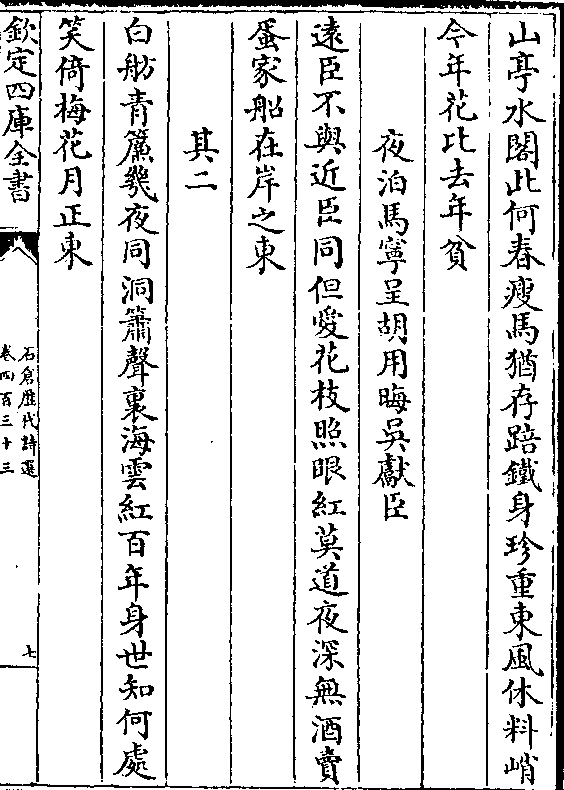 山亭水閣此何春瘦馬猶存踣鐵身珍重東風休料峭
今年花比去年貧
夜泊馬寧呈胡用晦吳獻臣
遠臣不與近臣同但愛花枝照眼紅莫道夜深無酒賣
蛋家船在岸之東
其二
白舫青簾幾夜同洞簫聲裏海雲紅百年身世知何處
笑倚梅花月正東
欽定四庫全書
石倉歷代詩選
卷四百三十三
七